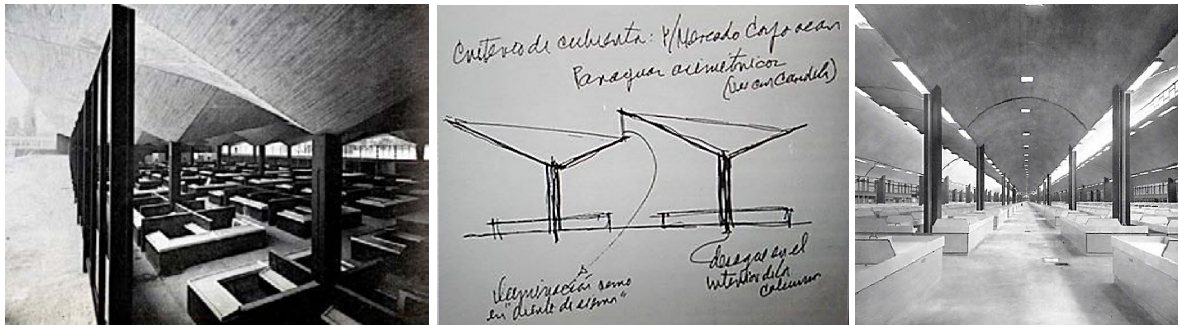 Criterio de cubierta: P/Mercado Coyoacan
Paraguas asimetricos
(ver con Candela)
Iluminación como
en "diente de sierra"
desague en el
interior de la
columna